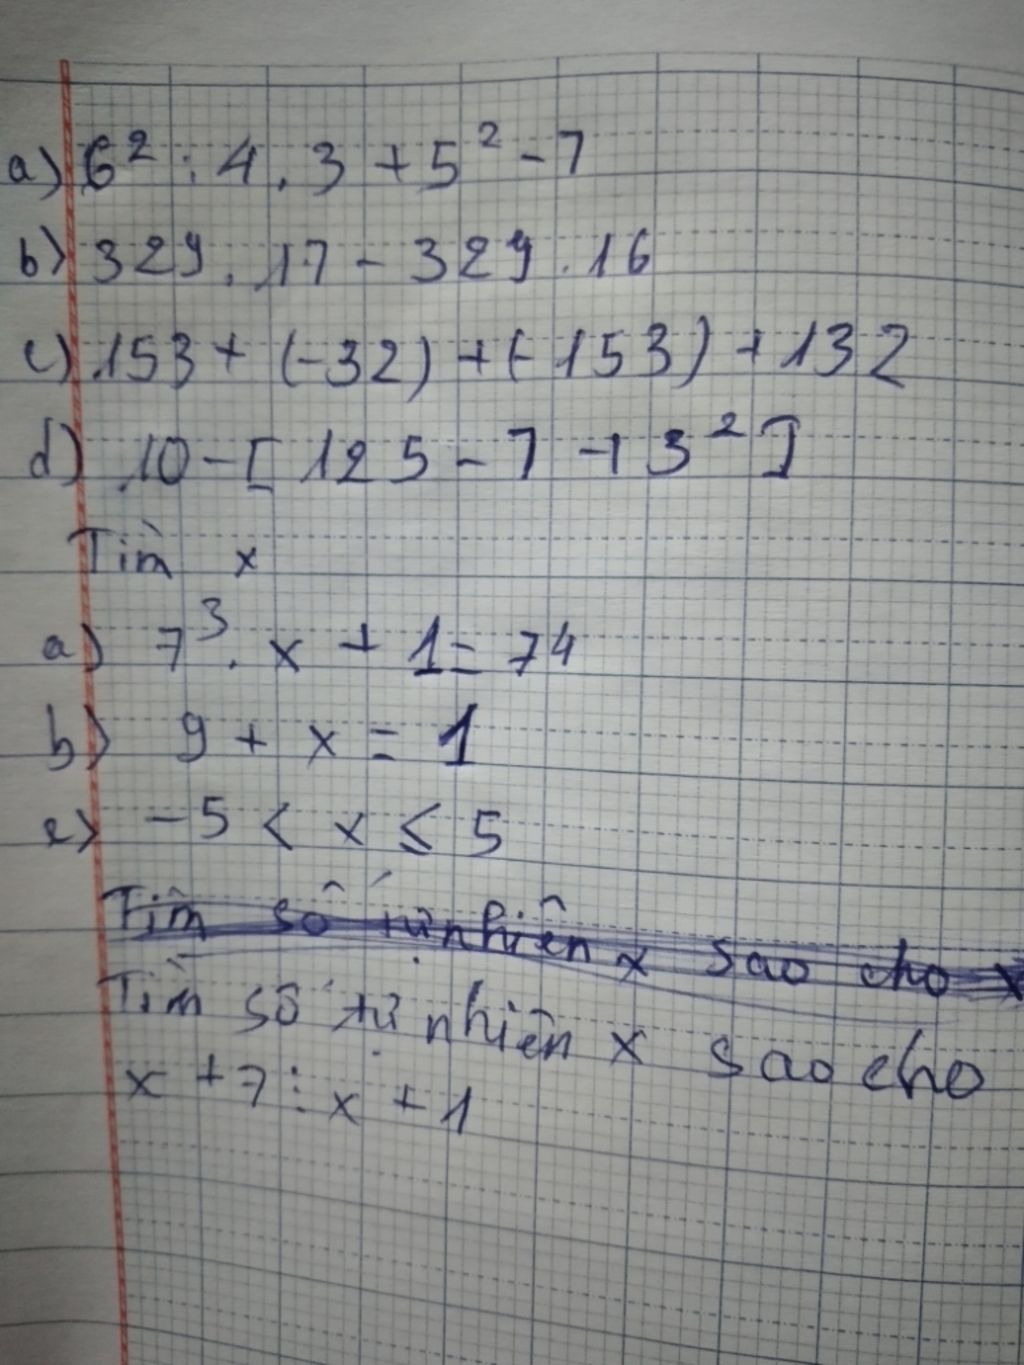 a) 6² : 4 . 3 + 5² - 7
b) 329 . 17 - 329 . 16
c) 153 + (-32) + (-153) + 132
d) 10 - [125 - 7 + 3²]
Tìm x
a) 7³ . x + 1 = 74
b) 9 + x = 1
c) -5 < x ≤ 5
Tìm số tự nhiên x sao cho x
Tìm số tự nhiên x sao cho
x + 7 ⋮ x + 1